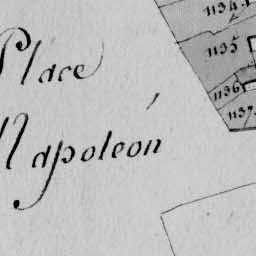 Place
Napoléon
1134
1135
1136
1137